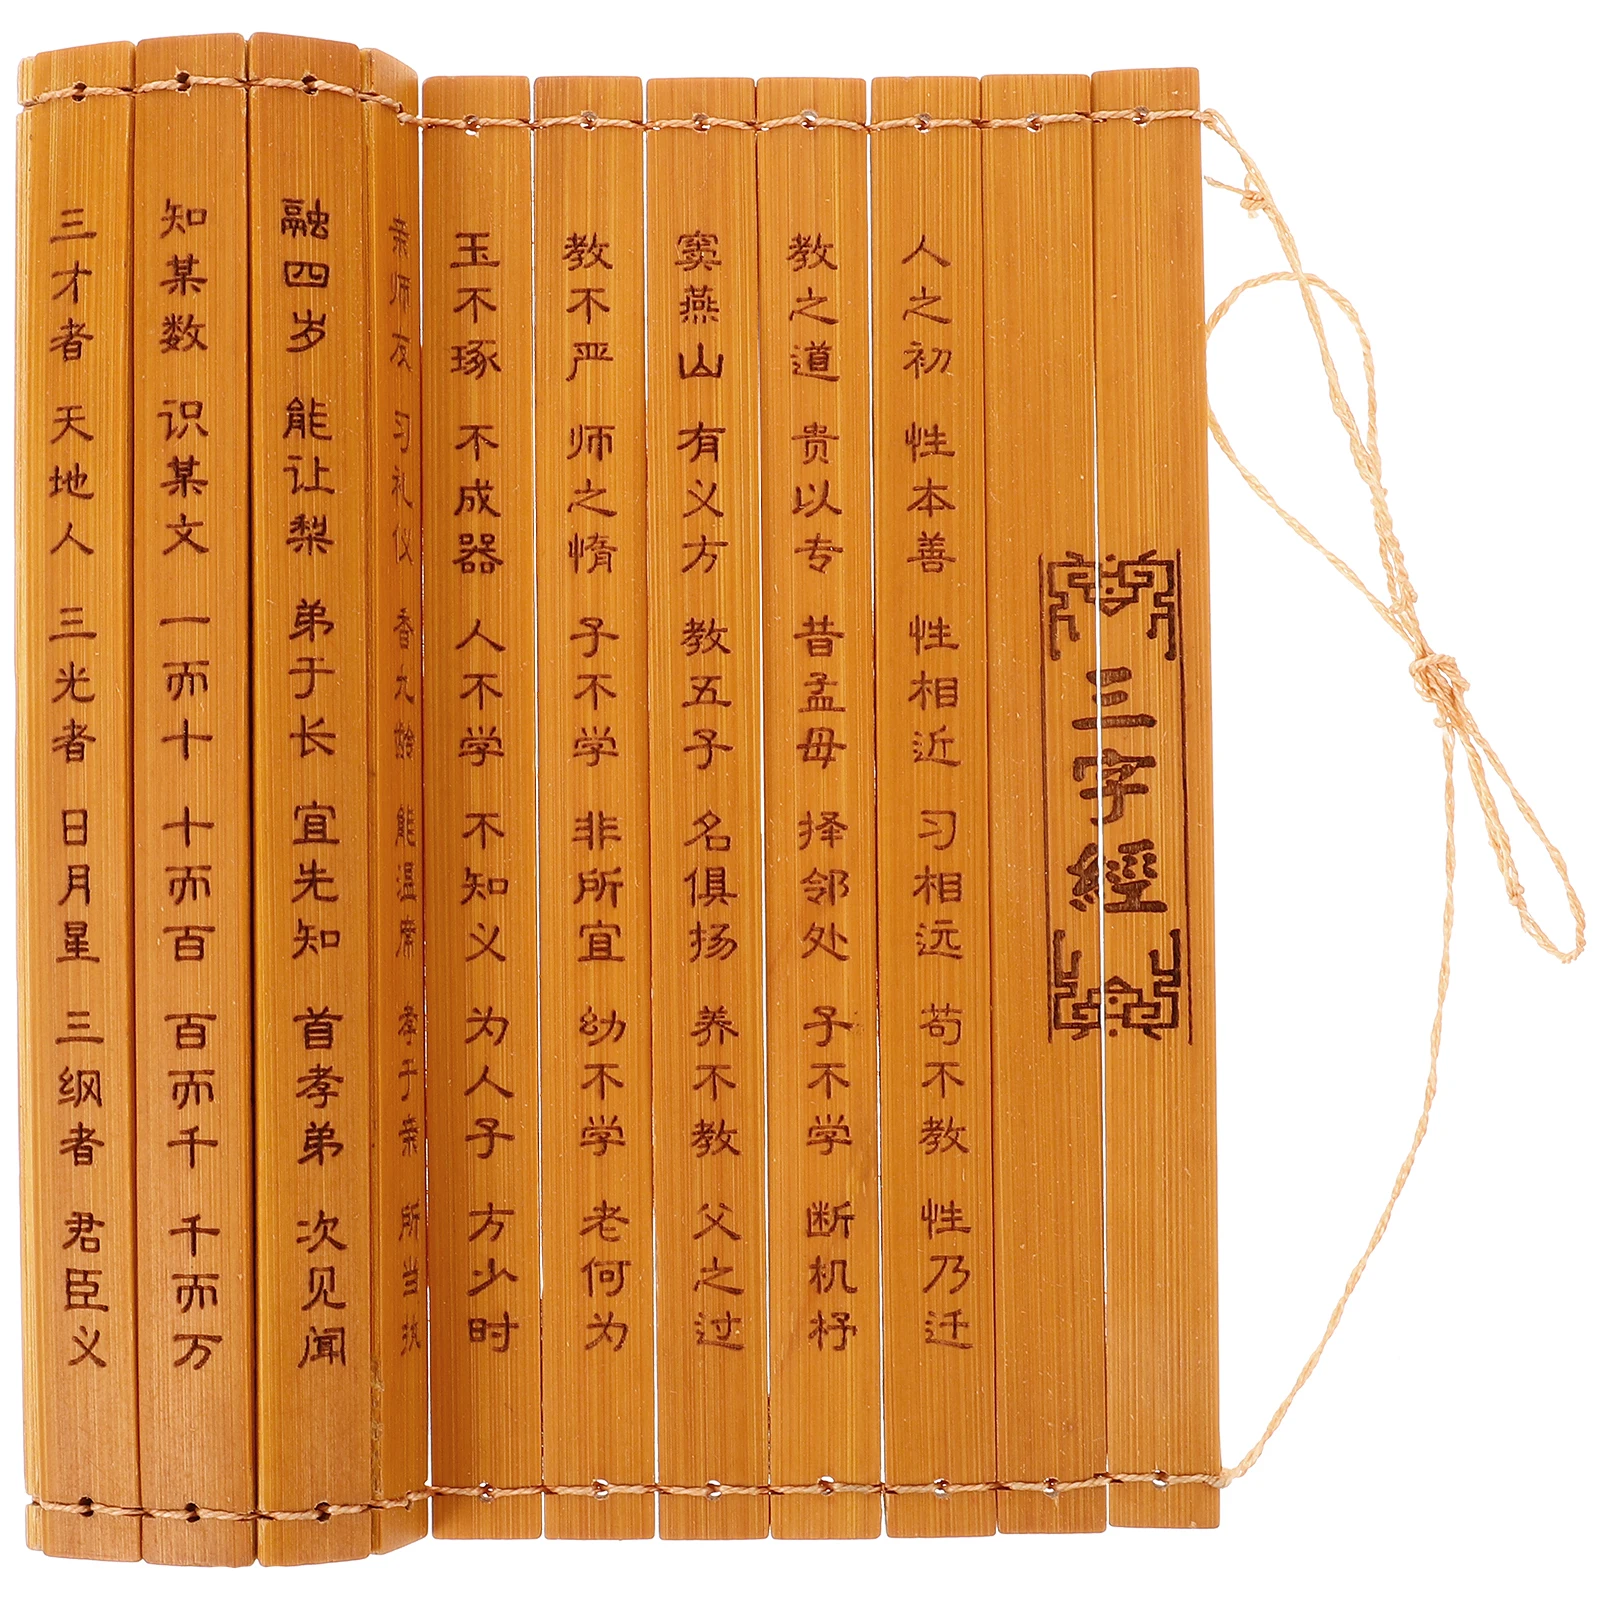 三字經
人之初 性本善 性相近 习相远 苟不教 性乃迁
教之道 贵以专 昔孟母 择邻处 子不学 断机杼
窦燕山 有义方 教五子 名俱扬 养不教 父之过
教不严 师之惰 子不学 非所宜 幼不学 老何为
玉不琢 不成器 人不学 不知义 为人子 方少时
亲师友 习礼仪 香九龄 能温席 孝于亲 所当执
融四岁 能让梨 弟于长 宜先知 首孝弟 次见闻
知某数 识某文 一而十 十而百 百而千 千而万
三才者 天地人 三光者 日月星 三纲者 君臣义